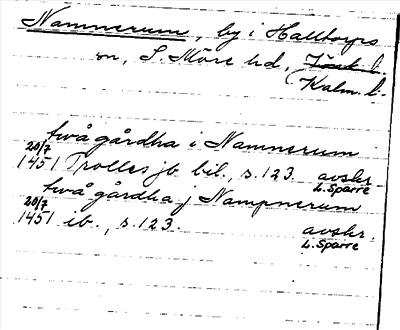 Nammerum, by i Halltorps
sn, S. Möre hd, Jönk l.
(Kalm. l.
två gårdha i Namnerum
20/7
1451 Trolles jb bil., s. 123. avskr.
L. Sparre
två gårdha j Nampnerum
20/7
1451 ib., s. 123. avskr.
L. Sparre